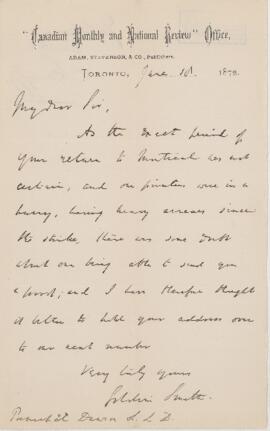 "Canadian Monthly and National Review" Office,
ADAM, STEVENSON, & CO., Publishers.
TORONTO, June 10. 1872.
My dear Sir,
As the exact period of
your return to Montreal was not
certain, and our printers were in a
hurry, having heavy arrears since
the strike, there was some doubt
about our being able to send you
a proof; and I have therefore thought
it better to hold your address over
to our next number
Very truly yours
Goldwin Smith.
Principal Dawson L. L. D.